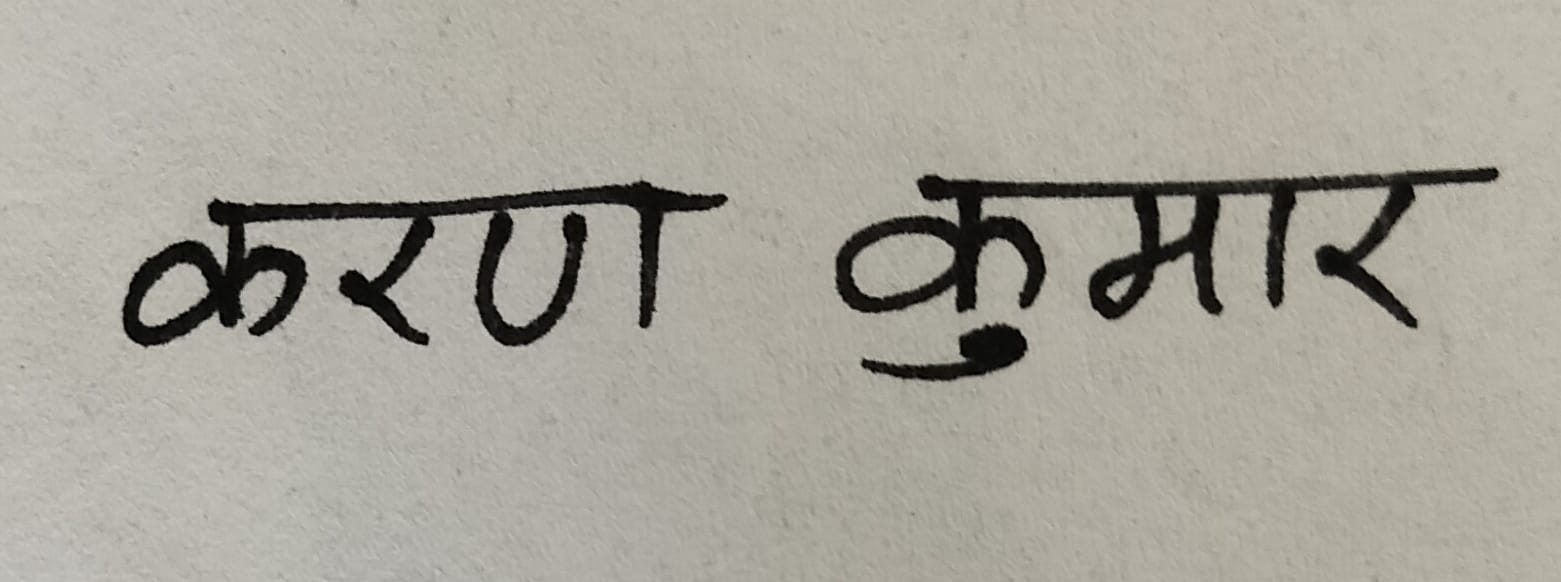 करण कुमार